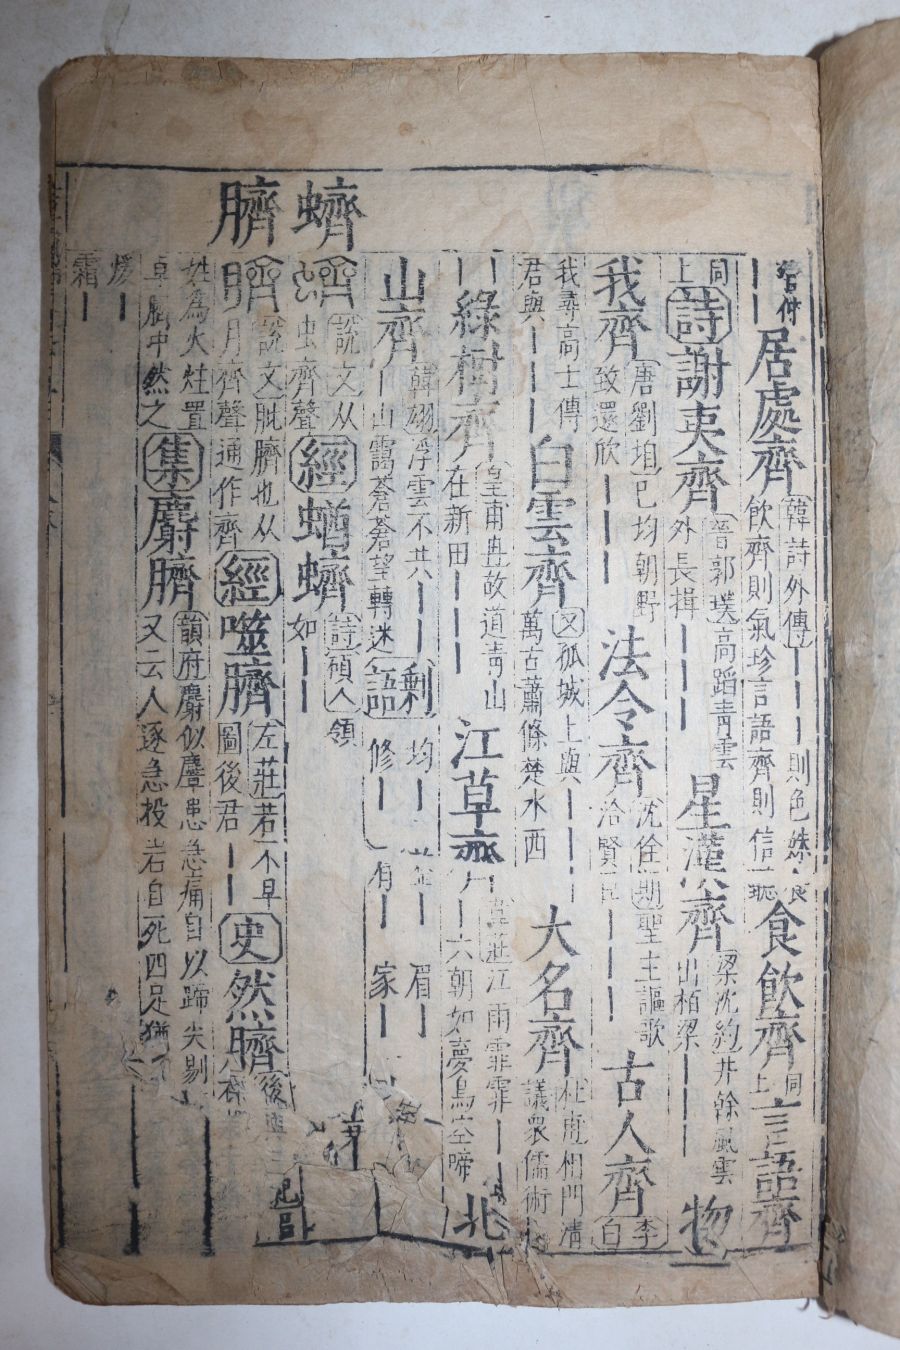 居處齊 韓詩外傳｜｜｜則色 飲齊則氣珍言語齊則信 食飲齊 同上 言語齊
同上 詩 謝夷齊 晉郭璞高蹈青雲外長揖｜｜ 星漢齊 梁沈約井幹風雲出栢梁｜｜｜ 物
我齊 唐劉 巴均朝野致還欣｜｜｜ 法令齊 沈佺期聖主謳歌洽賢｜｜｜ 古人齊 李白
我尋高士傳君與｜｜｜ 白雲齊 又孤城上與｜｜｜萬古蕭條楚水西 大名齊 杜甫相門清議衆儒術
｜｜ 綠樹齊 皇甫冉故道青山在新田｜｜｜ 江草齊 韋莊江雨霏霏｜｜六朝如夢鳥空啼 北
山齊 韓翃浮雲不共｜｜｜｜山靄蒼蒼望轉迷 剩語 均｜ ｜ 眉｜ 修｜ 有｜ 家｜
蠐
蠐 說文从虫齊聲 經 蝤蠐 詩碩人領如｜｜
臍
臍 說文肶臍也从月齊聲通作齊 經 噬臍 左莊若不早圖後君｜｜ 史 然臍 後
姓為火炷置卓臍中然之 集 麝臍 韻府麝似麞患急痛自以蹄尖剔 又云人逐急投岩自死四足猶
｜
霜｜